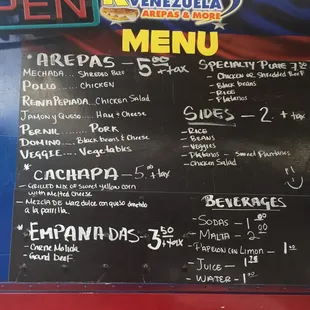 PEN
VENEZUELA
AREPAS & MORE
MENU
* AREPAS - 5.00 + tax
MECHADA ... SHREDED BEEF
POLLO ... CHICKEN
REINA PEPIADA .. CHICKEN SALAD
JAMON Y QUESO ... HAM + CHEESE
PERNIL ... PORK
DOMINO ... BLACK BEANS & CHEESE
VEGGIE ... VEGETABLES
* CACHAPA - 5.00 + tax
- GRILLED MIX OF SWEET YELLOW CORN
WITH MELTED CHEESE
- MEZCLA DE MAIZ DULCE CON QUESO DERRETIDO
A LA PARILLA.
* EMPANADAS - 3.50 + tax
- CARNE MOLIDA
- GROUND BEEF
SPECIALTY PLATE 7.50
- CHICKEN OR SHREDDED BEEF
- BLACK BEANS
- RICE
- PLATANOS
SIDES - 2. + tax
- RICE
- BEANS
- VEGGIES
- PLATANOS - SWEET PLANTAINS
- CHICKEN SALAD
BEVERAGES
- SODAS - 1.00
- MALTA - 2.00
- PAPELON CON LIMON - 1.50
- JUICE - 1.75
- WATER - 1.00